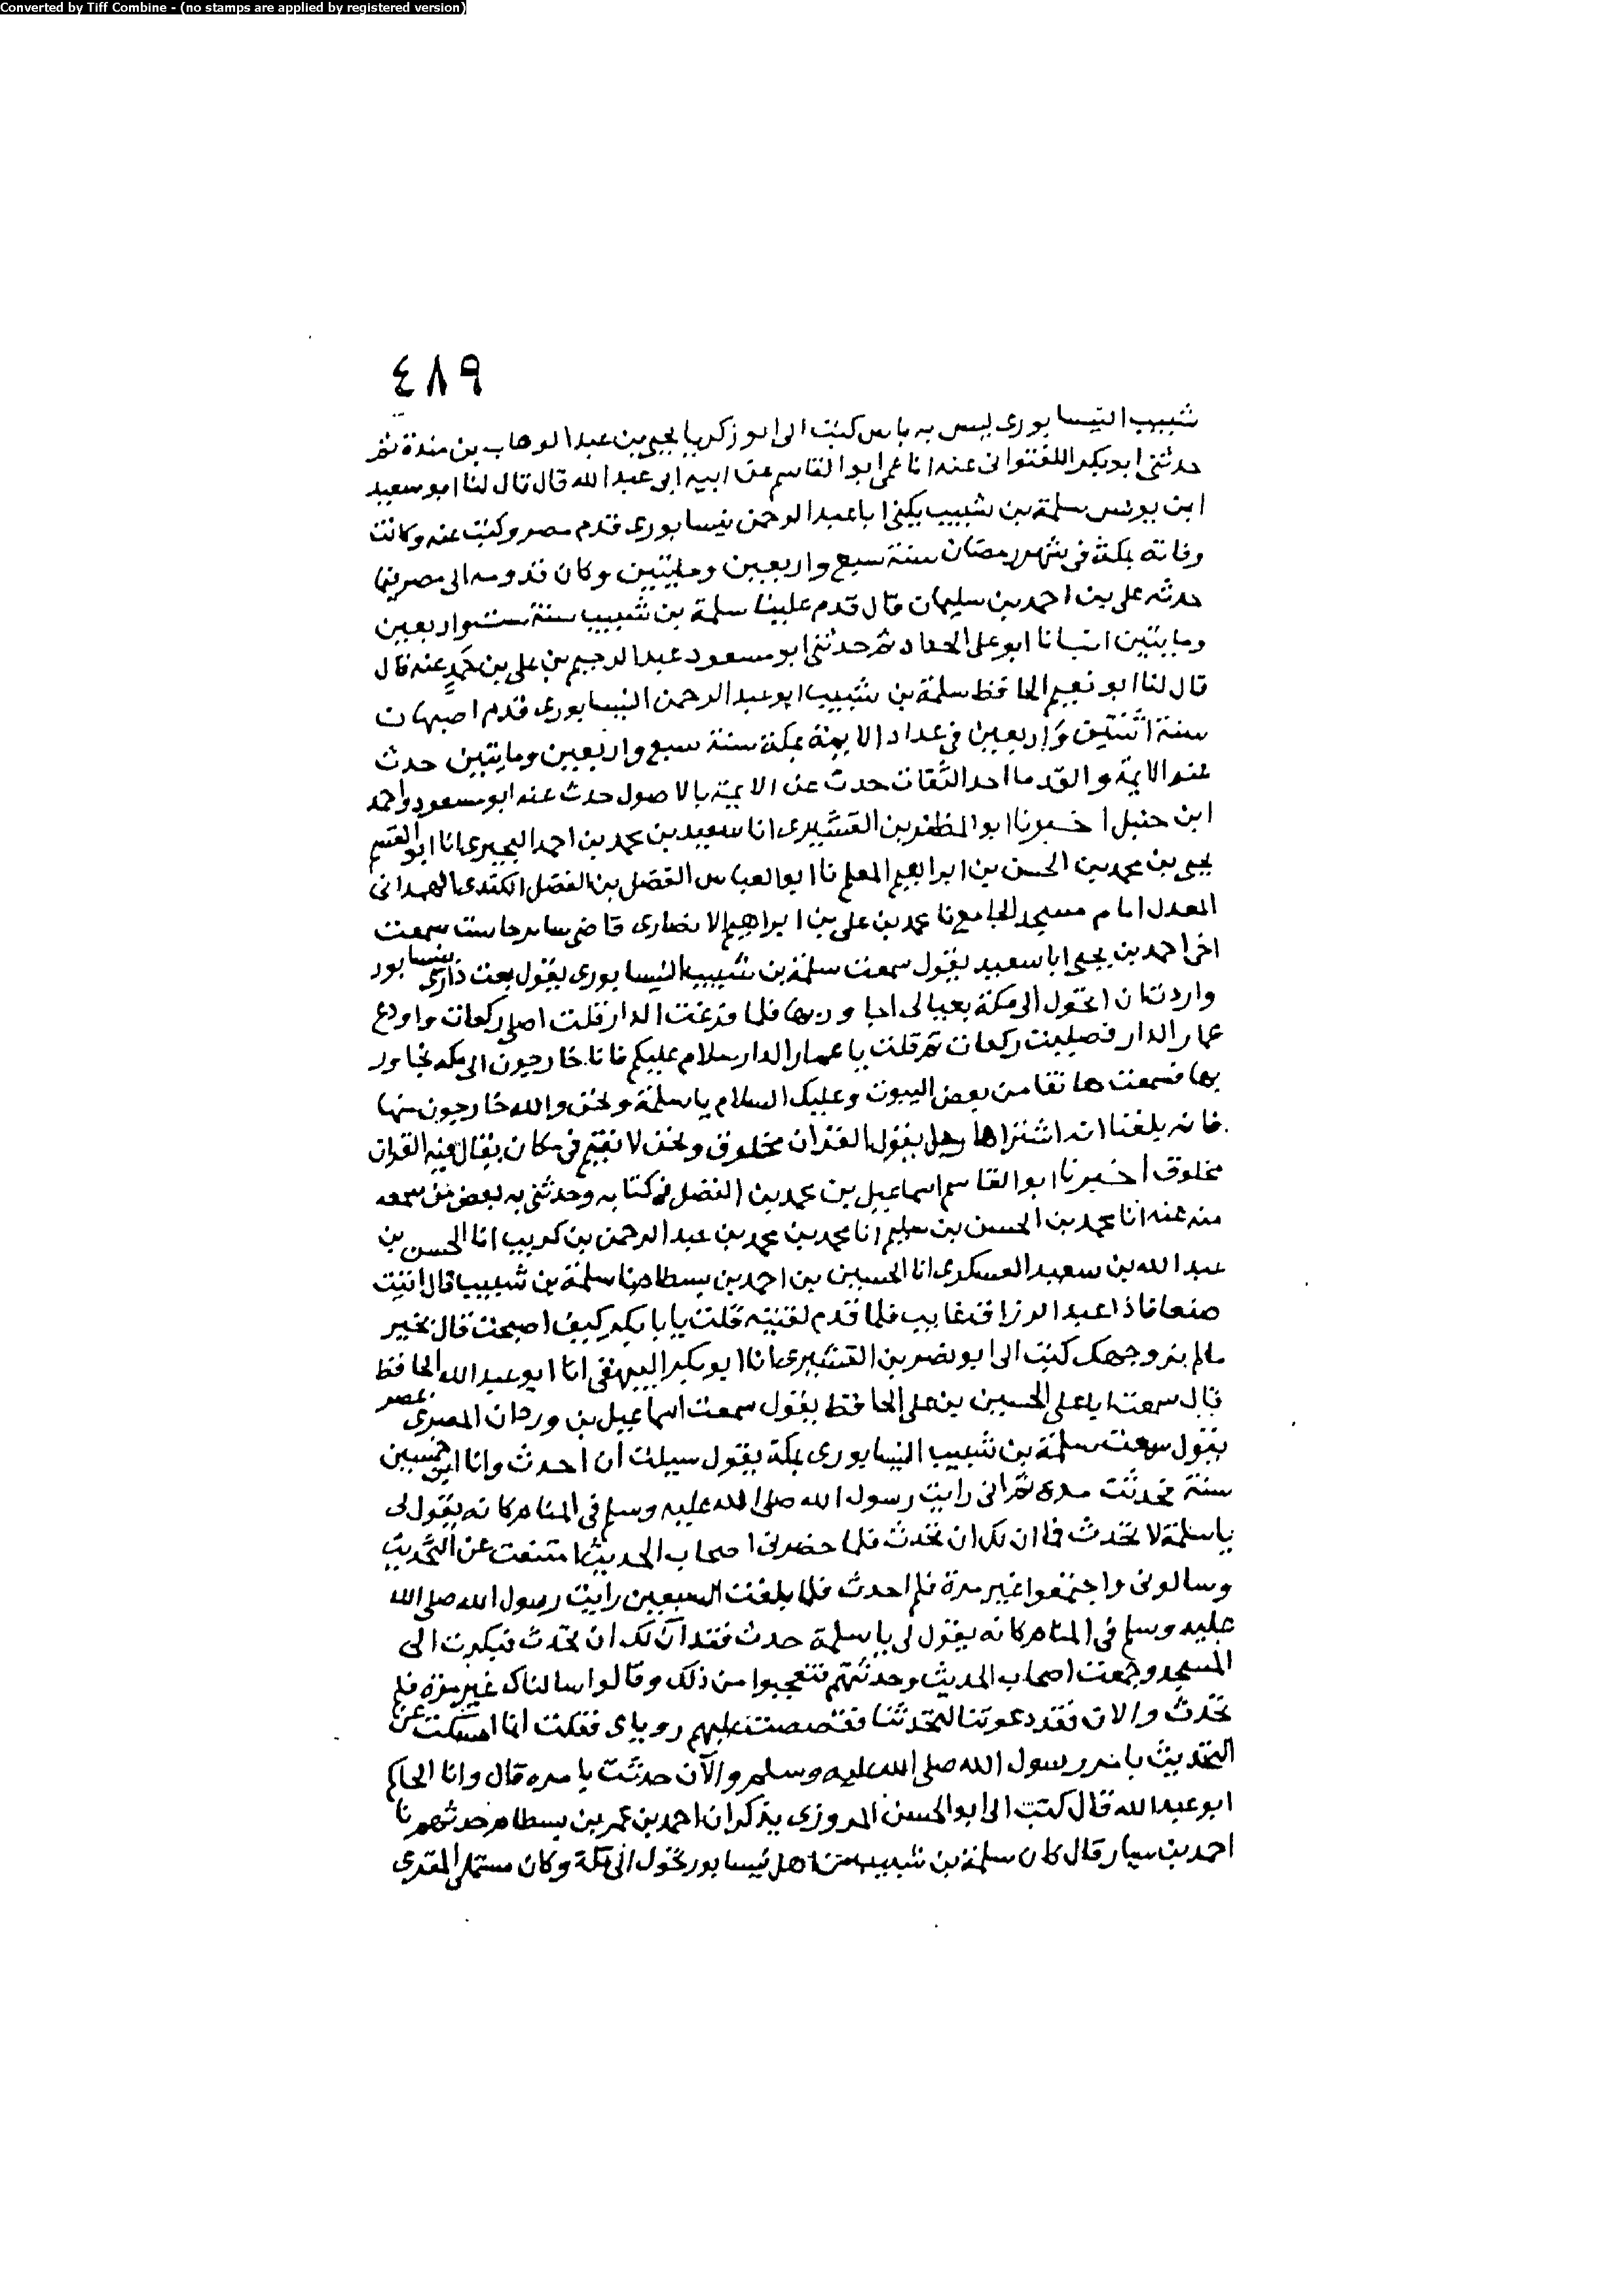 Converted by Tiff Combine - (no stamps are applied by registered version)
٤٨٩
شبيب النيسابورى ليس به باس كتب الى ابو زكريا يحيى بن عبد الوهاب بن مندة ثم
حدثنى ابو بكر اللفتوانى عنه انا عمى ابو القاسم عن ابيه ابى عبد الله قال قال لنا ابو سعيد
ابن يونس سلمة بن شبيب يكنى ابا عبد الرحمن نيسابورى قدم مصر وكتب عنه وكانت
وفاته بمكة فى شهر رمضان سنة سبع واربعين ومايتين وكان قدومه الى مصر فيما
حدثه على بن احمد بن سليمان قال قدم علينا سلمة بن شبيب سنة ست واربعين
ومايتين انبانا ابو على الحداد ثم حدثنى ابو مسعود عبد الرحيم بن على بن حمد عنه قال
قال لنا ابو نعيم الحافظ سلمة بن شبيب ابو عبد الرحمن النيسابورى قدم اصبهان
سنة اثنتين واربعين فى عداد الايمة بمكة سنة سبع واربعين ومايتين حدث
عنه الايمة والقدما احد الثقات حدث عن الايمة بالاصول حدث عنه ابو مسعود واحمد
ابن حنبل اخبرنا ابو المظفر بن القشيرى انا سعيد بن محمد بن احمد البحيرى انا ابو القسم
يحيى بن محمد بن الحسن بن ابراهيم المعلم نا ابو العباس الفضل بن الفضل الكندى الهمدانى
المعدل امام مسجد الجامع نا محمد بن على بن ابراهيم الانصارى قاضى سمعت
احمد بن يحيى ابا سعيد يقول سمعت سلمة بن شبيب النيسابورى يقول بعت دارى بنيسابور
واردت ان اتحول الى مكة بعيالى اجاور بها فلما فرغت الدار قلت اصلى ركعات واودع
عمار الدار فصليت ركعات ثم قلت يا عمار الدار سلام عليكم فانا خارجون الى مكه نجاور
بها فسمعت هاتفا من بعض البيوت وعليك السلام يا سلمة ونحن والله خارجون منها
فانه بلغنا انه اشتراها رجل يقول القران مخلوق ونحن لا نقيم فى مكان يقال فيه القران
مخلوق اخبرنا ابو القاسم اسماعيل بن محمد بن الفضل فى كتابه وحدثنى به بعض من سمعه
منه عنه انا محمد بن الحسن بن سليم انا محمد بن محمد بن عبد الرحمن بن كريب انا الحسن بن
عبد الله بن سعيد العسكرى انا الحسين بن احمد بن بسطام نا سلمة بن شبيب قال اتيت
صنعا فاذا عبد الرزاق غايب فلما قدم لقيته فقلت يا با بكر كيف اصبحت قال بخير
ما لم ير وجهك كتب الى ابو نصر بن القشيرى انا ابو بكر البيهقى انا ابو عبد الله الحافظ
قال سمعت ابا على الحسين بن على الحافظ يقول سمعت اسماعيل بن وردان المصرى بمصر
يقول سمعت سلمة بن شبيب النيسابورى بمكة يقول سيلت ان احدث وانا ابن خمسين
سنة فحدثت مده ثم انى رايت رسول الله صلى الله عليه وسلم فى المنام كانه يقول لى
يا سلمة لا تحدث فما ان لك ان تحدث فلما حضرنى اصحاب الحديث امتنعت عن التحديث
وسالونى واجتمعوا غير مرة فلم احدث فلما بلغت السبعين رايت رسول الله صلى الله
عليه وسلم فى المنام كانه يقول لى يا سلمة حدث فقد آن لك ان تحدث فبكرت الى
المسجد وجمعت اصحاب الحديث وحدثتهم فتعجبوا من ذلك وقالوا سالناك غير مرة فلم
تحدث والان فقد دعوتنا لتحدثنا فقصصت عليهم روياى فقلت انما امسكت عن
التحديث بامر رسول الله صلى الله عليه وسلم والآن حدثت بامره قال وانا الحاكم
ابو عبد الله قال كتب الى ابو الحسن المروزى يذكر ان احمد بن عمر بن بسطام حدثهم نا
احمد بن سيار قال كان سلمة بن شبيب من اهل نيسابور تحول الى مكة وكان مستملى المقرى